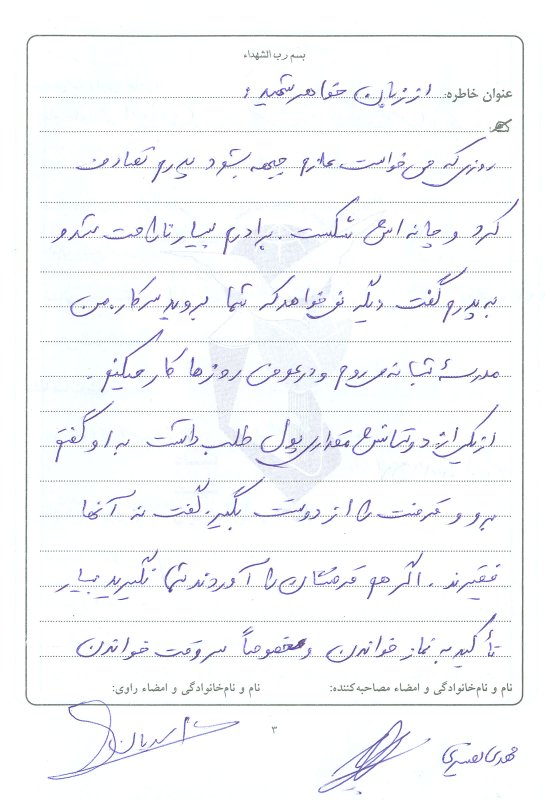 بسم رب الشهداء
عنوان خاطره: از زبان خواهر شهید:
روزی که می خواست عازم جبهه بشود پدرم تصادف
کرد و چانه اش شکست. برادرم بسیار ناراحت شد و
به پدرم گفت دیگر نمی خواهد که شما بروید سرکار. من
مدرسۀ شبانه می روم و در عوض روزها کار میکنم.
از یکی از دوستانش مقداری پول طلب داشت به او گفتم
برو و قرضت را از دوستت بگیر. گفت نه آنها
فقیرند. اگر هم قرضشان را آوردند شما نگیرید بسیار
تأکید به نماز خواندن و مخصوصاً سروقت خواندن
نام و نام‌خانوادگی و امضاء مصاحبه‌کننده: نام و نام‌خانوادگی و امضاء راوی:
۳
مهدی